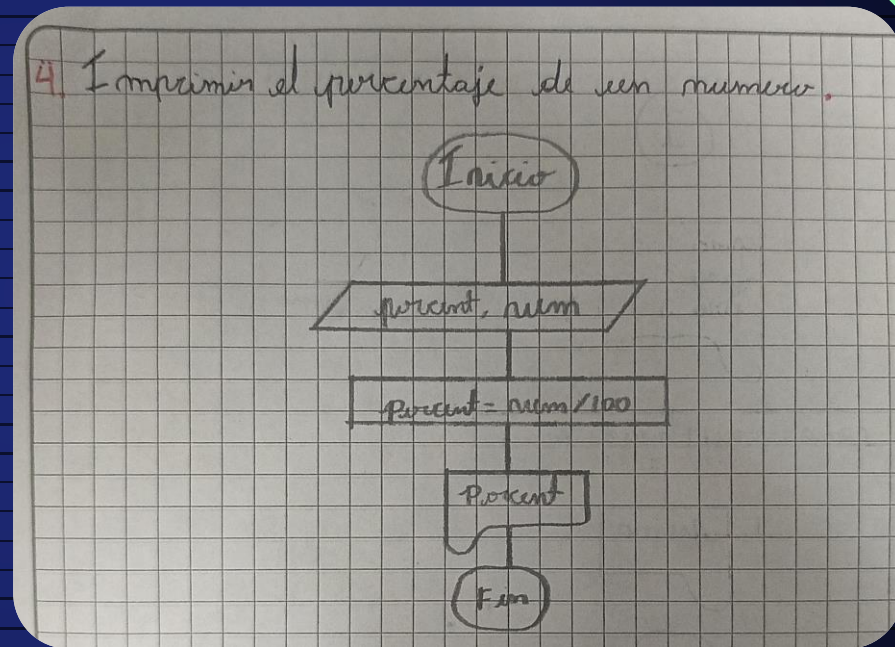 4. Imprimir el porcentaje de un numero.
Inicio
porcent, num
Porcent = num/100
Porcent
Fin